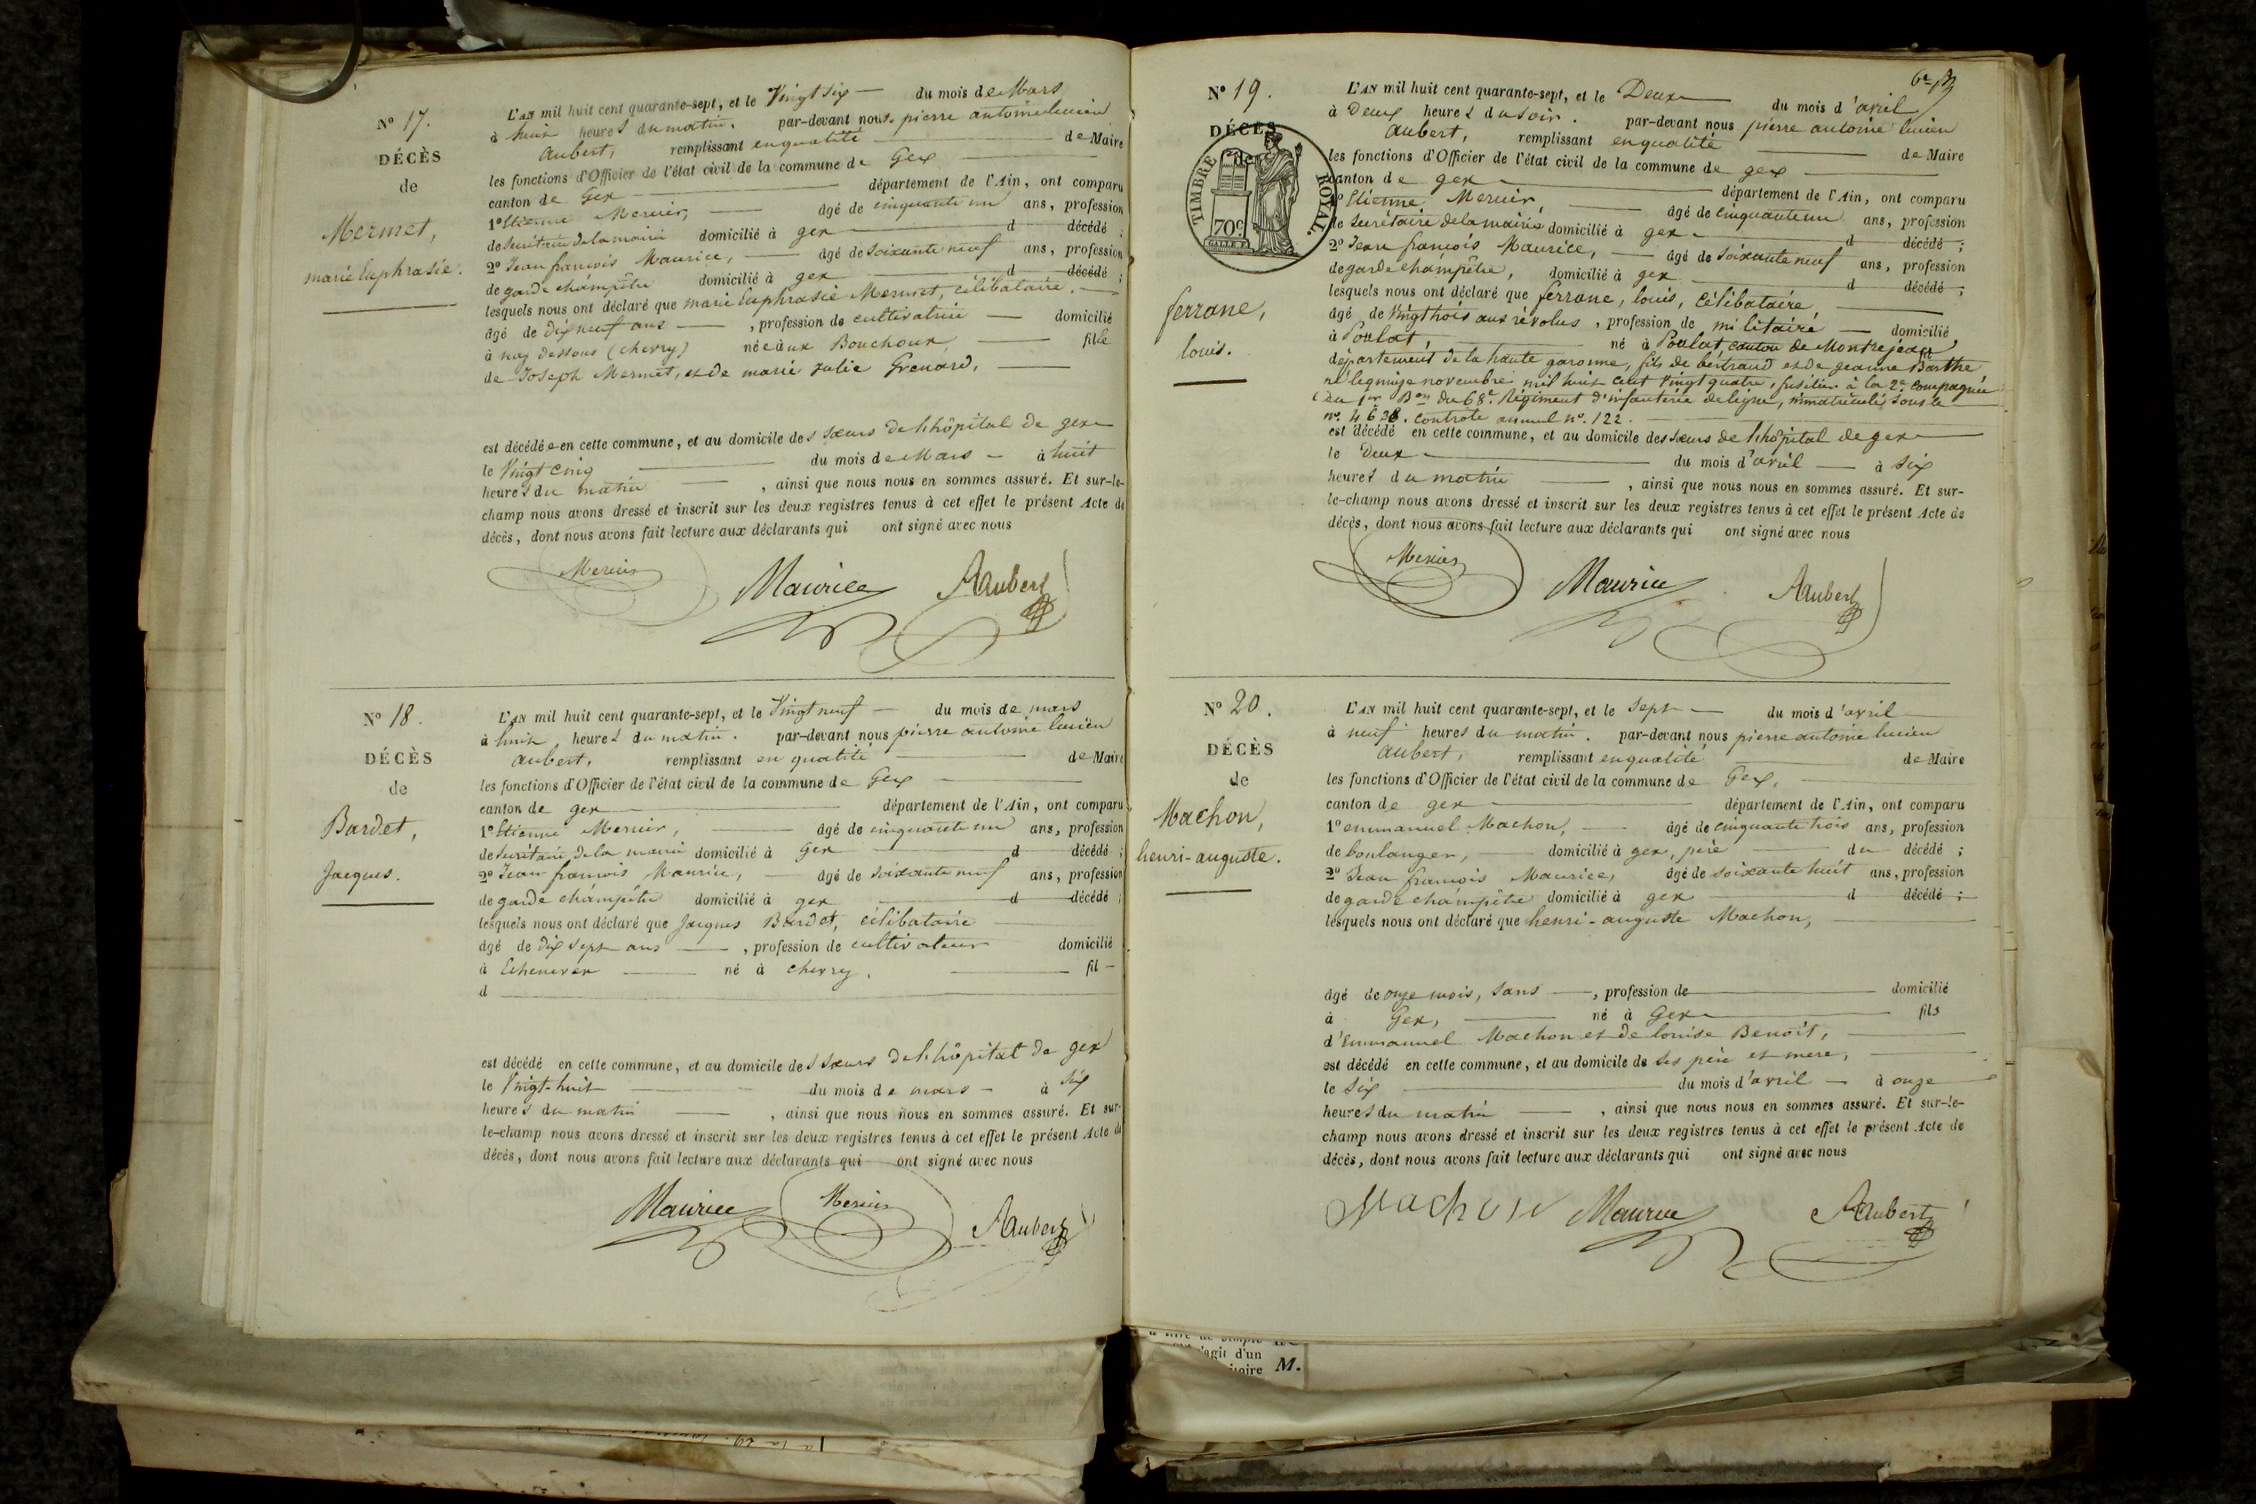 N° 17.
DÉCÈS
de
Mermet,
marie Euphrasie.
L'AN mil huit cent quarante-sept, et le Vingt six — du mois de Mars
à huit heures du matin. par-devant nous pierre antoine lucien
aubert, remplissant en qualité — de Maire
les fonctions d'Officier de l'état civil de la commune de Gex —
canton de Gex — département de l'Ain, ont comparu
1° Etienne Mercier, — âgé de cinquante un ans, profession
de Secrétaire de la mairie domicilié à gex — d décédé ;
2° Jean françois Maurice, — âgé de soixante neuf ans, profession
de garde champêtre domicilié à gex — d décédé ;
lesquels nous ont déclaré que marie Euphrasie Mermet, célibataire. —
âgé de dix neuf ans — , profession de cultivatrice — domicilié
à naz dessous (chevry) née aux Bouchoux, — fille
de Joseph Mermet, et de marie Julie Grenard, —
est décédée en cette commune, et au domicile des sœurs de l'hôpital de gex
le Vingt cinq — du mois de Mars — à huit
heures du matin — , ainsi que nous nous en sommes assuré. Et sur-le-
champ nous avons dressé et inscrit sur les deux registres tenus à cet effet le présent Acte de
décès, dont nous avons fait lecture aux déclarants qui ont signé avec nous
Mercier Maurice Aubert
N° 18.
DÉCÈS
de
Bardet,
Jacques.
L'AN mil huit cent quarante-sept, et le Vingt neuf — du mois de mars
à huit heures du matin. par-devant nous pierre antoine lucien
aubert, remplissant en qualité — de Maire
les fonctions d'Officier de l'état civil de la commune de Gex —
canton de gex — département de l'Ain, ont comparu
1° Etienne Mercier, — âgé de cinquante un ans, profession
de Secrétaire de la mairie domicilié à Gex — d décédé ;
2° Jean françois Maurice, — âgé de soixante neuf ans, profession
de garde champêtre domicilié à gex — d décédé ;
lesquels nous ont déclaré que Jacques Bardet, célibataire —
âgé de dix sept ans — , profession de cultivateur domicilié
à Echenevex — né à chevry. — fil —
d —
est décédé en cette commune, et au domicile des sœurs de l'hôpital de gex
le Vingt-huit — du mois de mars — à six
heures du matin — , ainsi que nous nous en sommes assuré. Et sur-
le-champ nous avons dressé et inscrit sur les deux registres tenus à cet effet le présent Acte de
décès, dont nous avons fait lecture aux déclarants qui ont signé avec nous
Maurice Mercier Aubert
N° 19.
DÉCÈS
de
TIMBRE ROYAL.
70c
ferrane,
louis.
L'AN mil huit cent quarante-sept, et le Deux — du mois d'avril
à Deux heures du soir. par-devant nous pierre antoine lucien
aubert, remplissant en qualité — de Maire
les fonctions d'Officier de l'état civil de la commune de gex —
canton de gex — département de l'Ain, ont comparu
1° Etienne Mercier, — âgé de cinquante un ans, profession
de Secrétaire de la mairie domicilié à gex — d décédé ;
2° Jean françois Maurice, — âgé de soixante neuf ans, profession
de garde champêtre, domicilié à gex — d décédé ;
lesquels nous ont déclaré que ferrane, louis, célibataire —
âgé de Vingt trois ans révolus, profession de militaire — domicilié
à Poulat, — né à Poulat canton de Montrejean fil
département de la haute garonne, fils de bertrand et de jeanne Barthe
né le quinze novembre mil huit cent vingt quatre, fusilier à la 2e compagnie
du 1er Bon du 68e Régiment d'infanterie de ligne, immatriculé sous le
n° 4638. controle annuel n°. 122.
est décédé en cette commune, et au domicile des sœurs de l'hôpital de gex —
le Deux — du mois d'avril — à six
heures du matin — , ainsi que nous nous en sommes assuré. Et sur-
le-champ nous avons dressé et inscrit sur les deux registres tenus à cet effet le présent Acte de
décès, dont nous avons fait lecture aux déclarants qui ont signé avec nous
Mercier Maurice Aubert
N° 20.
DÉCÈS
de
Machon,
henri-auguste.
L'AN mil huit cent quarante-sept, et le sept — du mois d'avril
à neuf heures du matin. par-devant nous pierre antoine lucien
aubert, remplissant en qualité — de Maire
les fonctions d'Officier de l'état civil de la commune de Gex, —
canton de gex — département de l'Ain, ont comparu
1° emmanuel Machon, — âgé de cinquante trois ans, profession
de boulanger, — domicilié à gex, père — du décédé ;
2° Jean françois Maurice, âgé de soixante huit ans, profession
de garde champêtre domicilié à gex — d décédé ;
lesquels nous ont déclaré que henri-auguste Machon, —
âgé de onze mois, sans — , profession de — domicilié
à Gex, — né à Gex — fils
d'Emmanuel Machon et de louise Benoit, —
est décédé en cette commune, et au domicile de ses père et mère, —
le six — du mois d'avril — à onze
heures du matin — , ainsi que nous nous en sommes assuré. Et sur-le-
champ nous avons dressé et inscrit sur les deux registres tenus à cet effet le présent Acte de
décès, dont nous avons fait lecture aux déclarants qui ont signé avec nous
Machon Maurice Aubert
agit d'un
M.